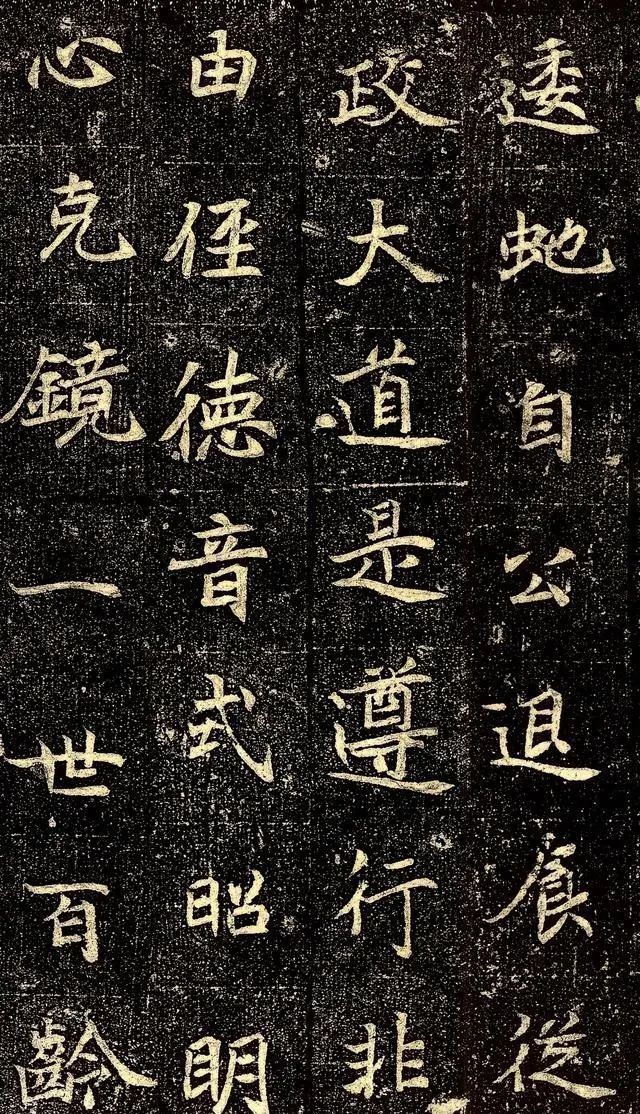 逶虵自公退食從
政大道是遵行非
由径德音式昭明
心克鏡一世百齡